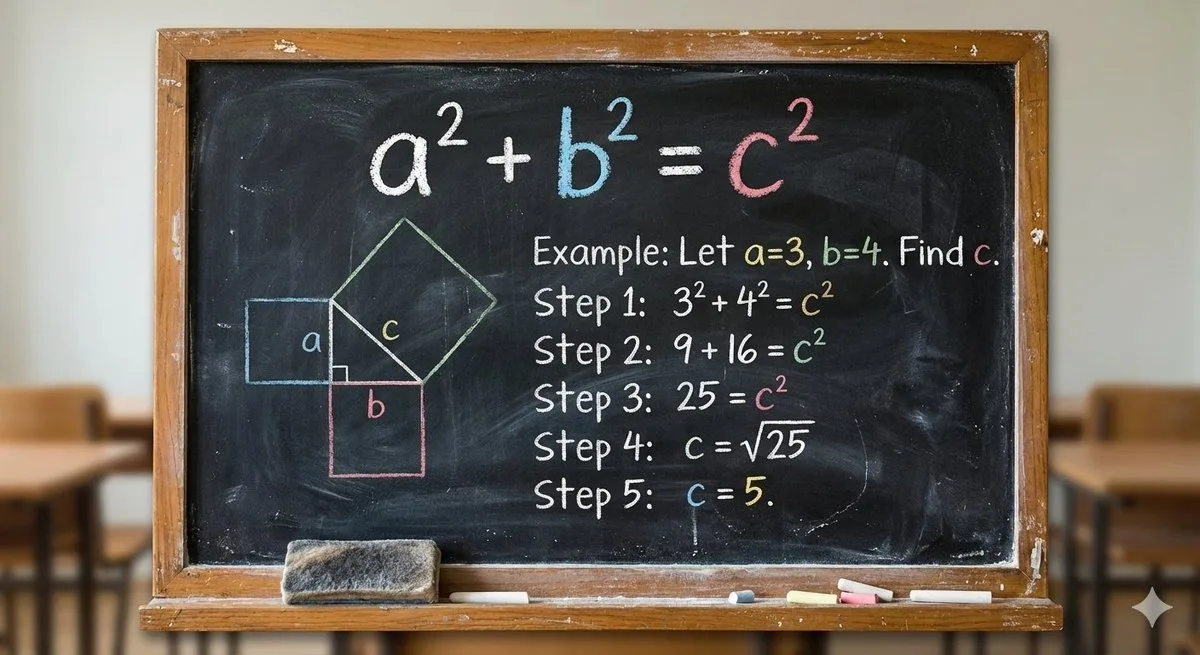 a² + b² = c²
a
c
b
Example: Let a=3, b=4. Find c.
Step 1: 3² + 4² = c²
Step 2: 9 + 16 = c²
Step 3: 25 = c²
Step 4: c = √25
Step 5: c = 5.